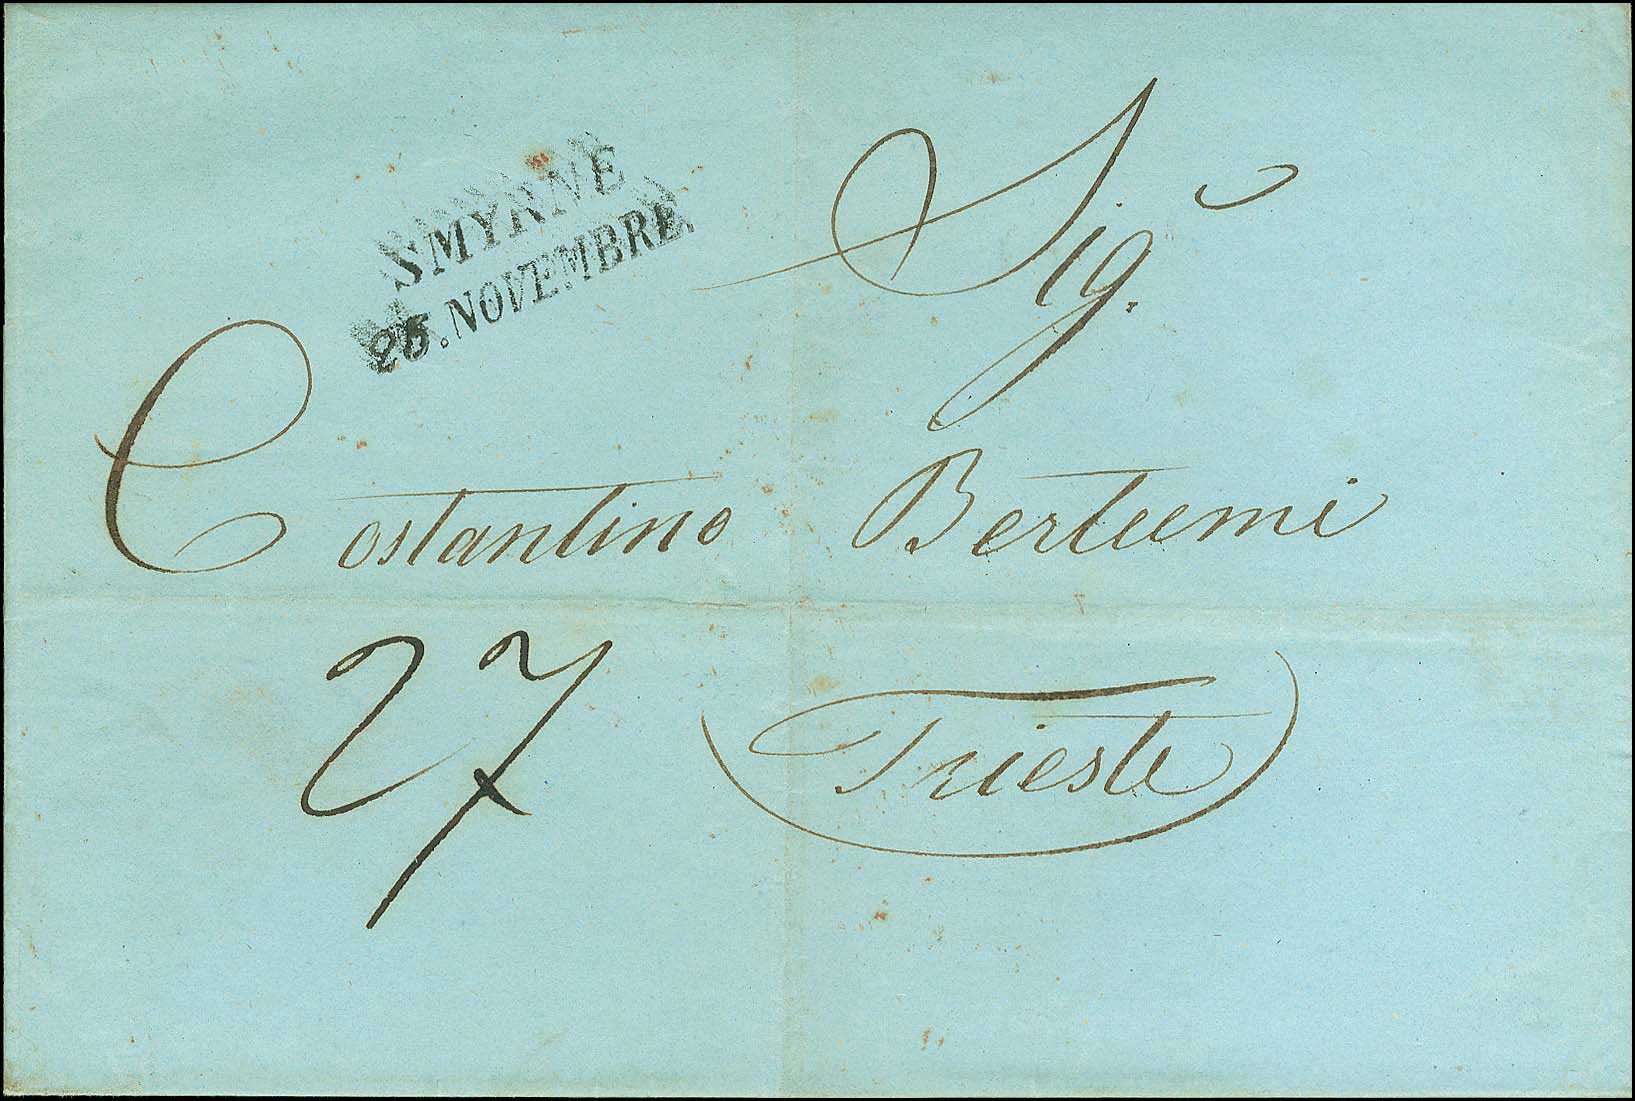 SMYRNE
25. NOVEMBRE.
Sig.
Costantino Bertumi
27
Trieste